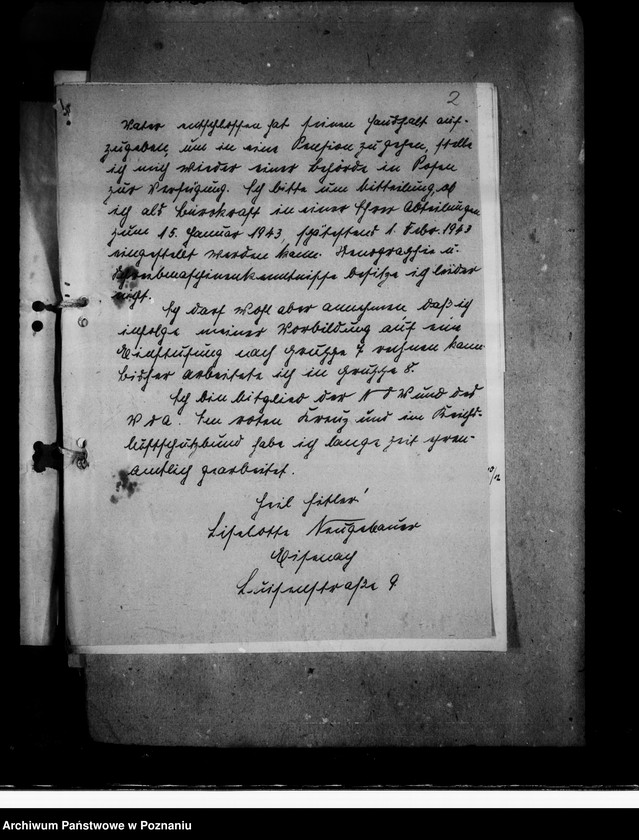 2
Vater entschlossen hat seinen Haushalt auf-
zugeben, um in eine Pension zu gehen, stelle
ich mich wieder einer Behörde in Posen
zur Verfügung. Ich bitte um Mitteilung, ob
ich als Bürokraft in einer Ihrer Abteilungen
zum 15. Januar 1943, spätestens 1. Febr. 1943
eingestellt werden kann. Stenographie u.
Schreibmaschinenkenntnisse besitze ich leider
nicht.
Ich darf wohl aber annehmen, daß ich
infolge meiner Vorbildung auf eine
Einstufung nach Gruppe 7 rechnen kann.
Bisher arbeitete ich in Gruppe 8.
Ich bin Mitglied der NSV und des
VDA. Im roten Kreuz und im Reichs-
luftschutzbund habe ich lange Zeit ehren-
amtlich gearbeitet.
Heil Hitler!
Liselotte Neugebauer
Eisenach
Luisenstraße 9
Archiwum Państwowe w Poznaniu